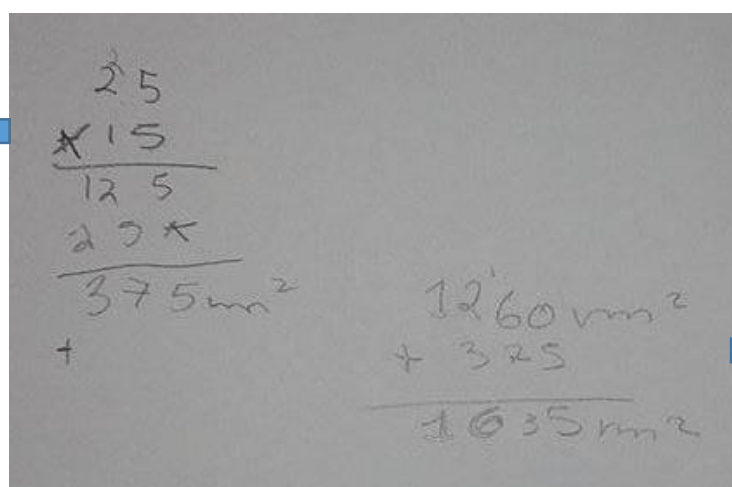 2
25
×15
125
25×
375 m²
+
1
1260 m²
+ 375
1635 m²